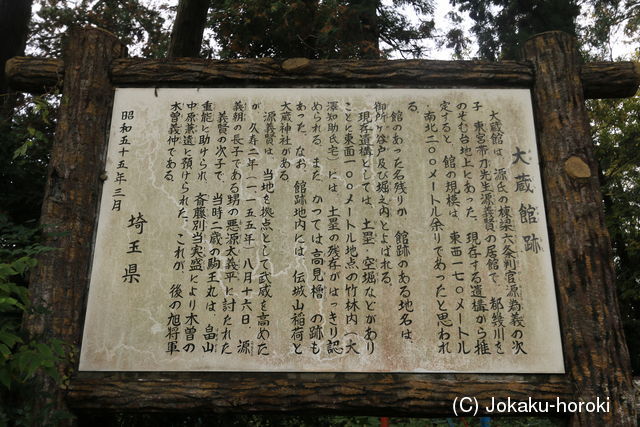 大蔵館跡
大蔵館は、源氏の棟梁六条判官源為義の次
子、東宮帯刀先生源義賢の居館で、都幾川を
のぞむ台地上にあった。現存する遺構から推
定すると、館の規模は、東西一七〇メートル
・南北二〇〇メートル余りであったと思われ
る。
館のあった名残りか、館跡のある地名は、
御所ヶ谷戸及び堀之内とよばれる。
現存遺構としては、土塁・空堀などがあり
ことに東面一〇〇メートル地点の竹林内(大
澤知助氏宅)には、土塁の残存がはっきり認
められる。また、かつては高見櫓の跡も
あった。なお、館跡地内には、伝城山稲荷と
大蔵神社がある。
源義賢は、当地を拠点として武威を高めた
が、久寿二年(一一五五年)八月十六日、源
義朝の長子である甥の悪源太義平に討たれた
義賢の次子で、当時二歳の駒王丸は、畠山
重能に助けられ、斎藤別当実盛により木曽の
中原兼遠に預けられた。これが、後の旭将軍
木曽義仲である。
昭和五十五年三月
埼玉県
(C) Jokaku-horoki